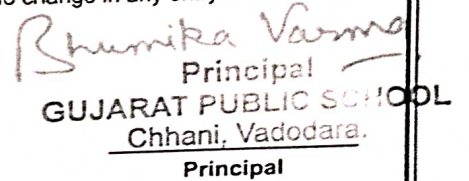 change in any
Bhumika Varma
Principal
GUJARAT PUBLIC SCHOOL
Chhani, Vadodara.
Principal